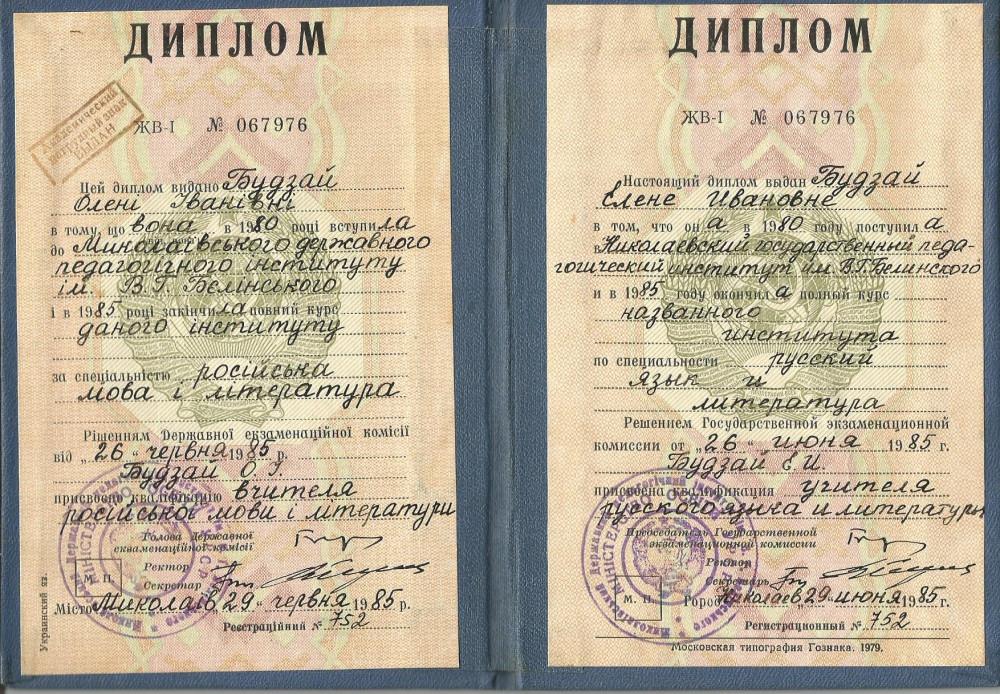 ДИПЛОМ
Академический
нагрудный знак
ВЫДАН
ЖВ-I № 067976
Цей диплом видано Будзай
Олені Іванівні
в тому, що вона в 1980 році вступила
до Миколаївського державного
педагогічного інституту
ім. В.Г. Бєлінського
і в 1985 році закінчила повний курс
даного інституту
за спеціальністю російська
мова і література
Рішенням Державної екзаменаційної комісії
від „26“ червня 1985 р.
Будзай О. І.
присвоєно кваліфікацію вчителя
російської мови і літератури
Голова Державної
екзаменаційної комісії
Ректор
Секретар
М. П.
Місто Миколаїв „29“ червня 1985 р.
Реєстраційний № 752
Украинский яз.
ДИПЛОМ
ЖВ-I № 067976
Настоящий диплом выдан Будзай
Елене Ивановне
в том, что она в 1980 году поступила
в Николаевский государственный педа-
гогический институт им. В.Г. Белинского
и в 1985 году окончила полный курс
названного
института
по специальности русский
язык и
литература
Решением Государственной экзаменационной
комиссии от „26“ июня 1985 г.
Будзай Е.И.
присвоена квалификация учителя
русского языка и литературы
Председатель Государственной
экзаменационной комиссии
Ректор
Секретарь
М. П.
Город Николаев „29“ июня 1985 г.
Регистрационный № 752
Московская типография Гознака. 1979.